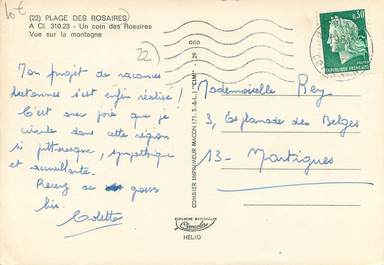 10€
(22) PLAGE DES ROSAIRES
A Cl. 310.23 - Un coin des Rosaires
Vue sur la montagne
22)
Mon projet de vacances
bretonnes s'est enfin réalisé !
C'est avec joie que je
circule dans cette région
si pittoresque, sympathique
et accueillante.
Recevez de gros
bis.
Colette
COMBIER IMPRIMEUR MACON (71, S.-&-L.) "CIM"
0,30
REPUBLIQUE FRANCAISE
Mademoiselle Rey
3, Esplanade des Belges
13 - Martigues
Combier
HELIO